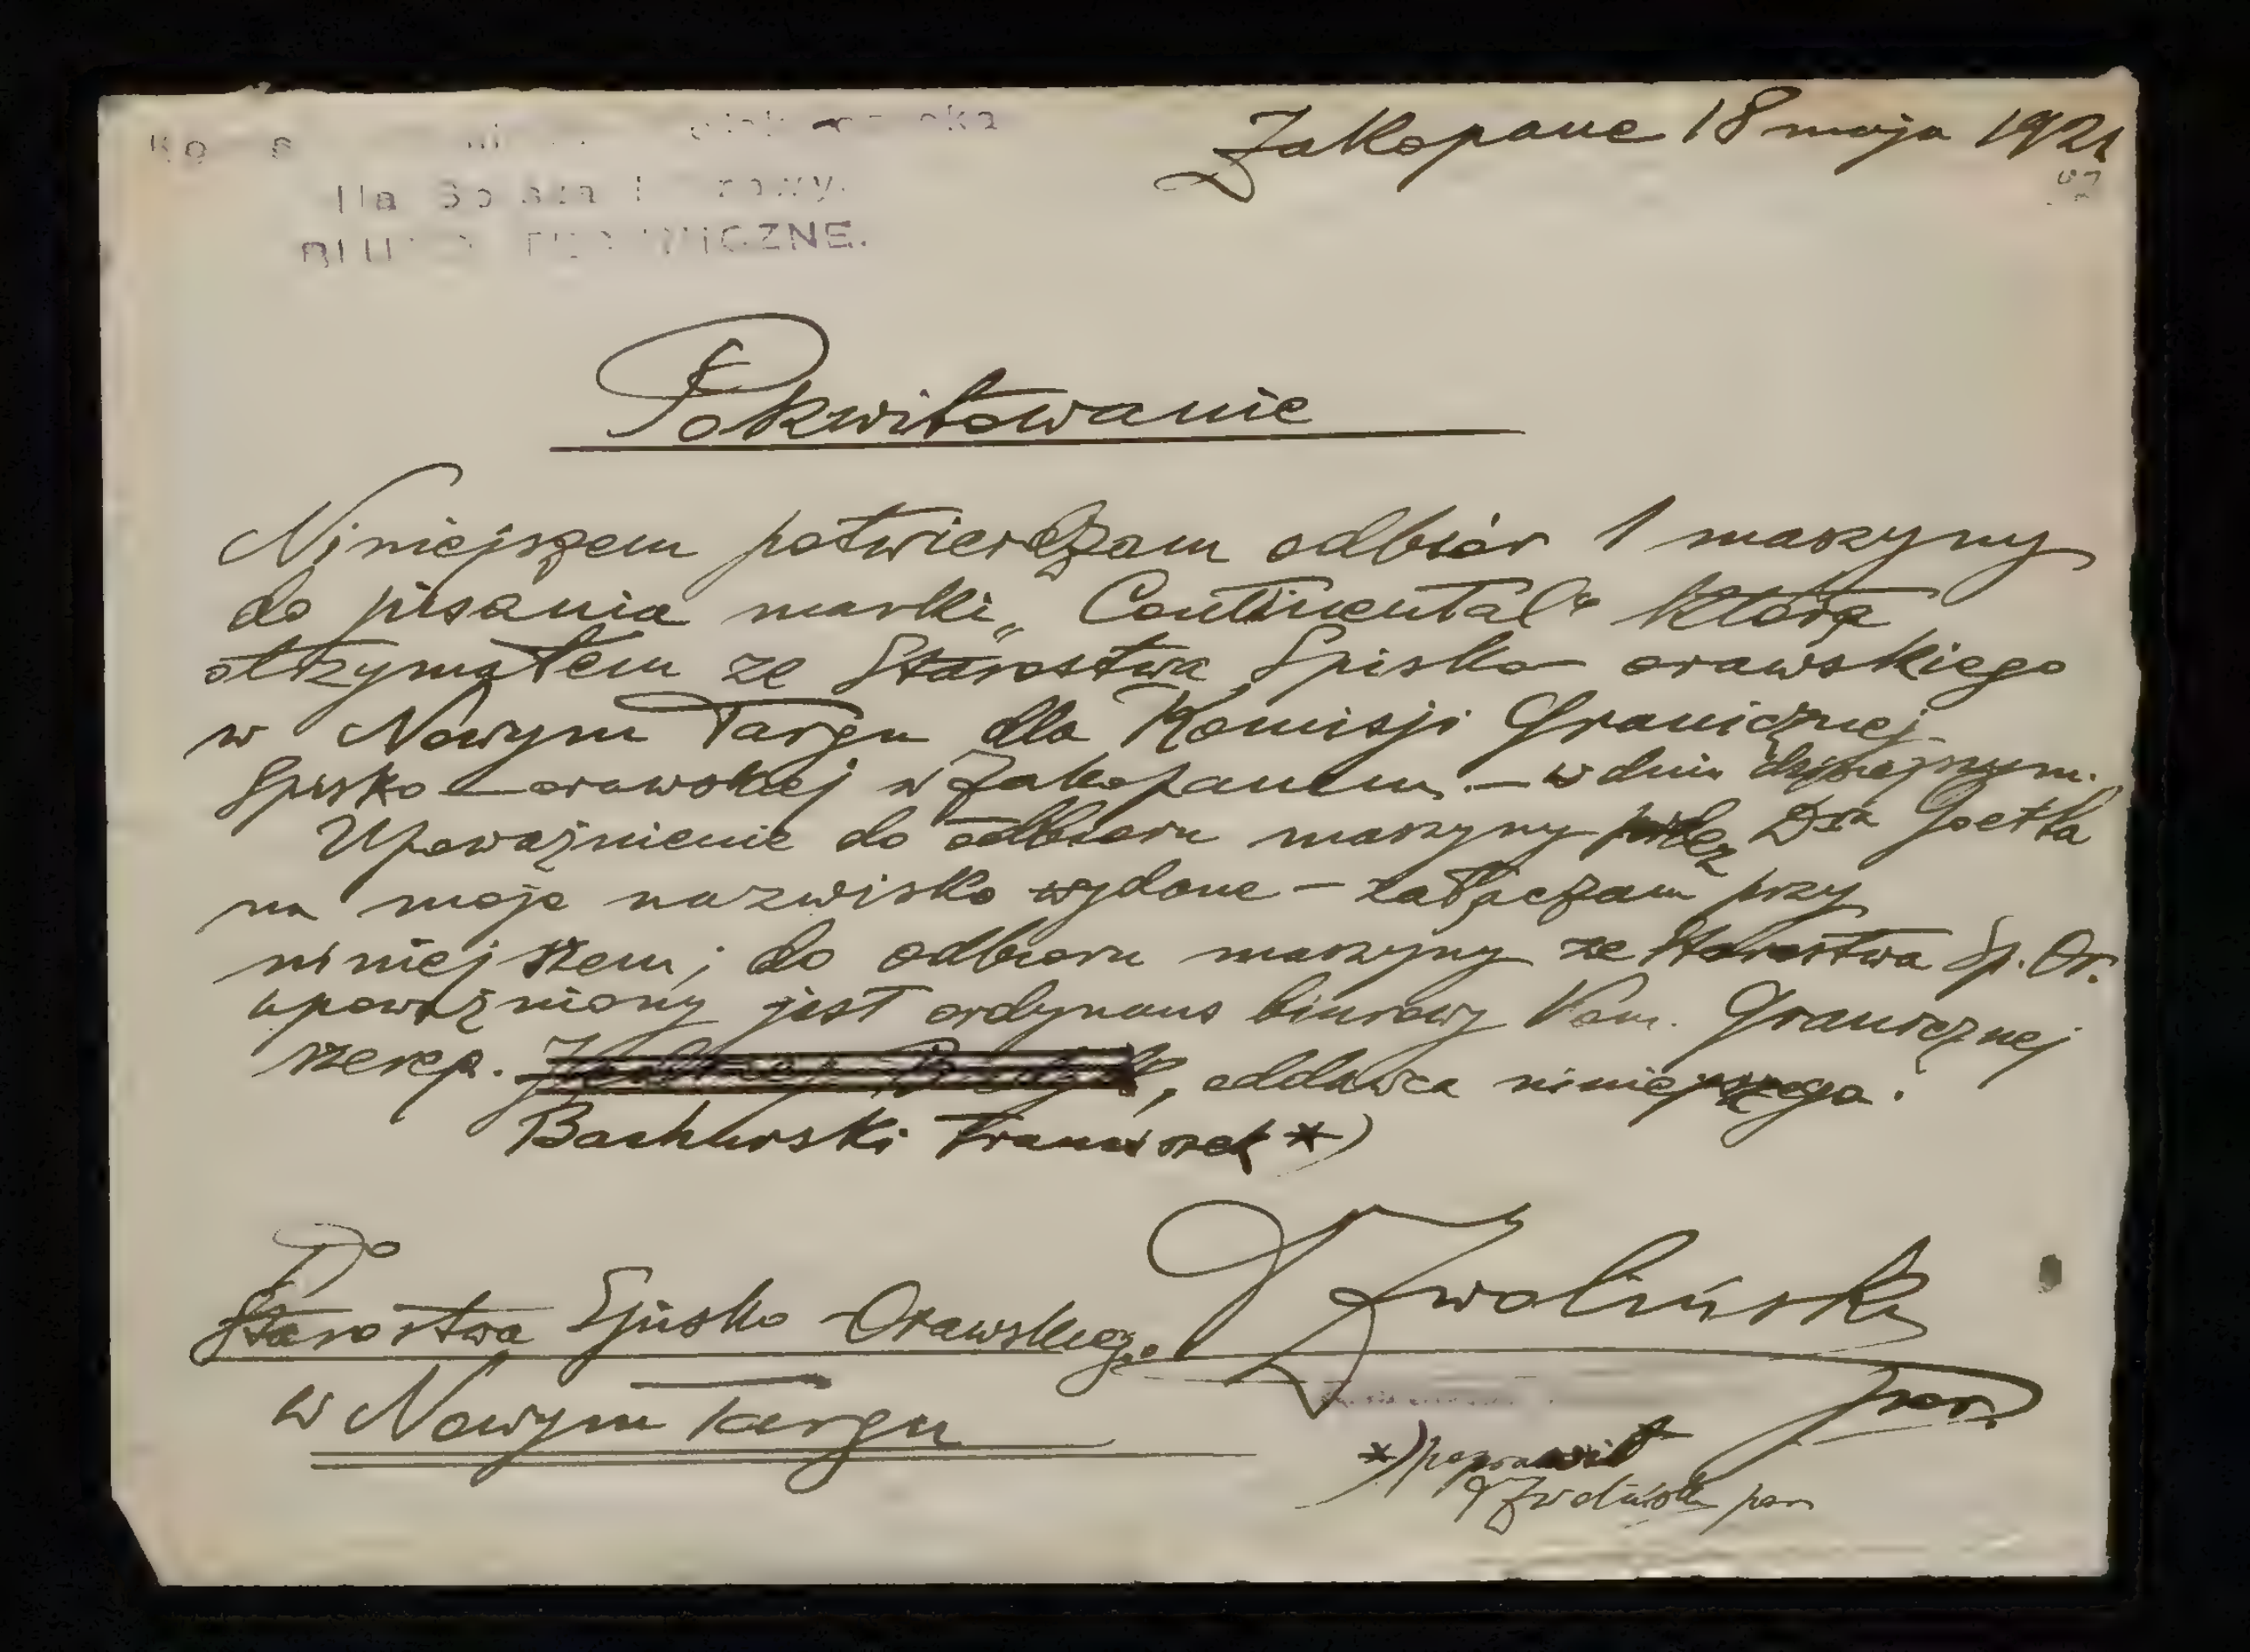 Zakopane 18 maja 1921
BIURO TECHNICZNE.
Pokwitowanie
Niniejszem potwierdzam odbiór 1 maszyny
do pisania marki „Continental" którą
otrzymałem ze Starostwa Spisko orawskiego
w Nowym Targu dla Komisji Granicznej
Spisko-orawskiej w Zakopanem. – w dniu dzisiejszym.
Upoważnienie do odbioru maszyny przez Dra Goetla
na moje nazwisko wydane – załączam przy
niniejszem; do odbioru maszyny ze Starostwa Sp. Or.
upoważniony jest ordynans biurowy Kom. Granicznej
szereg. , oddawca niniejszego.
Bachurski Franciszek *)
Do
Starostwa Spisko-Orawskiego
w Nowym Targu
Zwoliński
por.
*) poprawił
Zwoliński por.